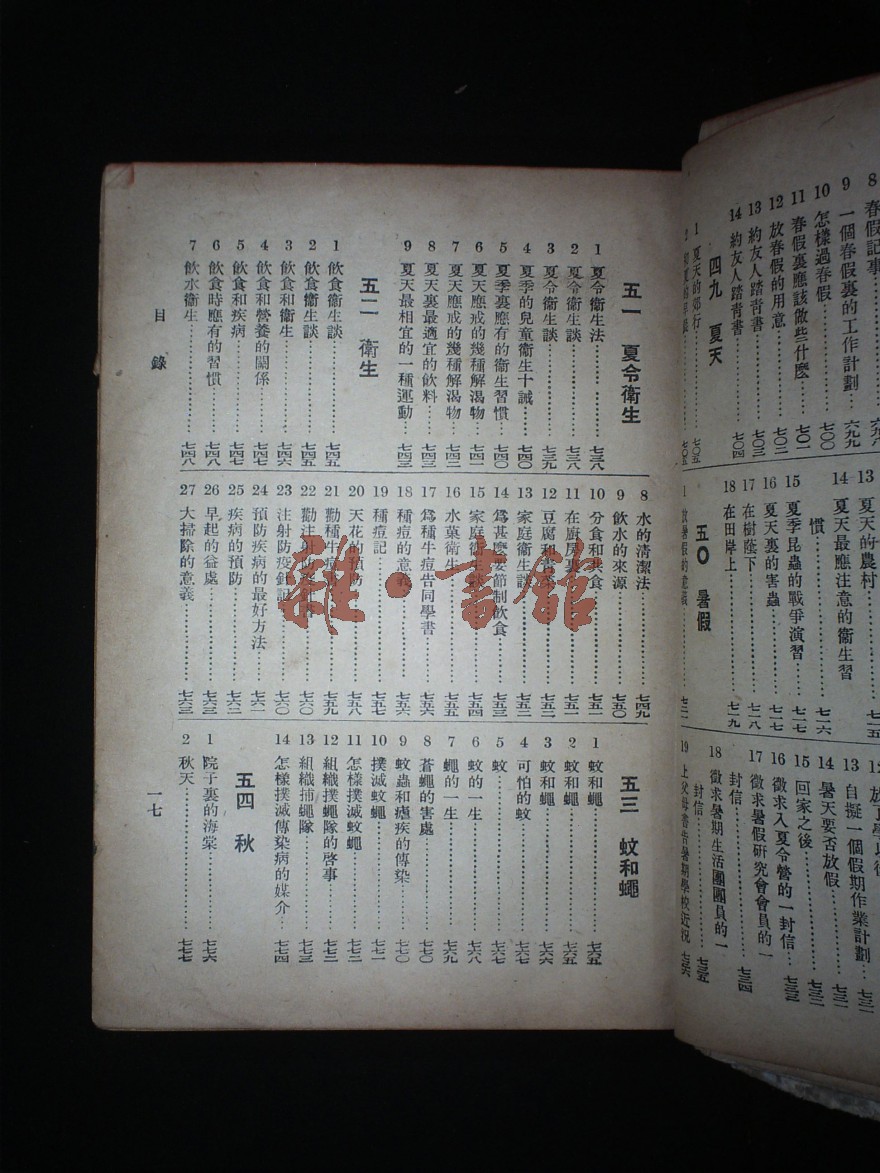 8 春假記事⋯⋯六九八
9 一個春假裏的工作計劃⋯六九九
10 怎樣過春假⋯⋯七〇〇
11 春假裏應該做些什麼⋯⋯七〇一
12 放春假的用意⋯⋯七〇二
13 約友人踏青書⋯⋯七〇三
14 約友人踏青書⋯⋯七〇四
四九 夏天
1 夏天的郊行⋯⋯七〇五
13 夏天的農村⋯⋯七一五
14 夏天最應注意的衞生習
慣⋯⋯七一六
15 夏季昆蟲的戰爭演習⋯⋯七一七
16 夏天裏的害蟲⋯⋯七一七
17 在樹蔭下⋯⋯七一八
18 在田岸上⋯⋯七一九
五〇 暑假
1 放暑假的意義⋯⋯七二一
13 自擬一個假期作業計劃⋯七三一
14 暑天要否放假⋯⋯七三二
15 回家之後⋯⋯七三二
16 徵求入夏令營的一封信⋯七三三
17 徵求暑假研究會會員的一
封信⋯⋯七三四
18 徵求暑期生活團團員的一
封信⋯⋯七三五
19 上父母書告暑期學校近況⋯七三六
五一 夏令衞生
1 夏令衞生法⋯⋯七三八
2 夏令衞生談⋯⋯七三八
3 夏令衞生談⋯⋯七三九
4 夏季的兒童衞生十誡⋯⋯七四〇
5 夏季裏應有的衞生習慣⋯⋯七四〇
6 夏天應戒的幾種解渴物⋯⋯七四一
7 夏天應戒的幾種解渴物⋯⋯七四二
8 夏天裏最適宜的飲料⋯⋯七四三
9 夏天最相宜的一種運動⋯⋯七四三
五二 衞生
1 飲食衞生談⋯⋯七四五
2 飲食衞生談⋯⋯七四五
3 飲食和衞生⋯⋯七四六
4 飲食和營養的關係⋯⋯七四七
5 飲食和疾病⋯⋯七四七
6 飲食時應有的習慣⋯⋯七四八
7 飲水衞生⋯⋯七四八
8 水的清潔法⋯⋯七四九
9 飲水的來源⋯⋯七五〇
10 分食和共食⋯⋯七五一
11 在廚房裏⋯⋯七五一
12 豆腐和青菜⋯⋯七五二
13 家庭衞生談⋯⋯七五二
14 爲甚麼要節制飲食⋯⋯七五三
15 家庭衞生談⋯⋯七五四
16 水菓衞生⋯⋯七五五
17 爲種牛痘告同學書⋯⋯七五六
18 種痘的意義⋯⋯七五六
19 種痘記⋯⋯七五七
20 天花的預防⋯⋯七五八
21 勸種牛痘書⋯⋯七五九
22 勸注射防疫針書⋯⋯七六〇
23 注射防疫針記⋯⋯七六〇
24 預防疾病的最好方法⋯⋯七六一
25 疾病的預防⋯⋯七六二
26 早起的益處⋯⋯七六三
27 大掃除的意義⋯⋯七六三
五三 蚊和蠅
1 蚊和蠅⋯⋯七六五
2 蚊和蠅⋯⋯七六五
3 蚊和蠅⋯⋯七六六
4 可怕的蚊⋯⋯七六七
5 蚊⋯⋯七六七
6 蚊的一生⋯⋯七六八
7 蠅的一生⋯⋯七六九
8 蒼蠅的害處⋯⋯七七〇
9 蚊蟲和瘧疾的傳染⋯⋯七七〇
10 撲滅蚊蠅⋯⋯七七一
11 怎樣撲滅蚊蠅⋯⋯七七二
12 組織捕蠅隊的啓事⋯⋯七七二
13 組織捕蠅隊⋯⋯七七三
14 怎樣撲滅傳染病的媒介⋯⋯七七四
五四 秋
1 院子裏的海棠⋯⋯七七六
2 秋天⋯⋯七七七
目錄
一七
雜·書舘